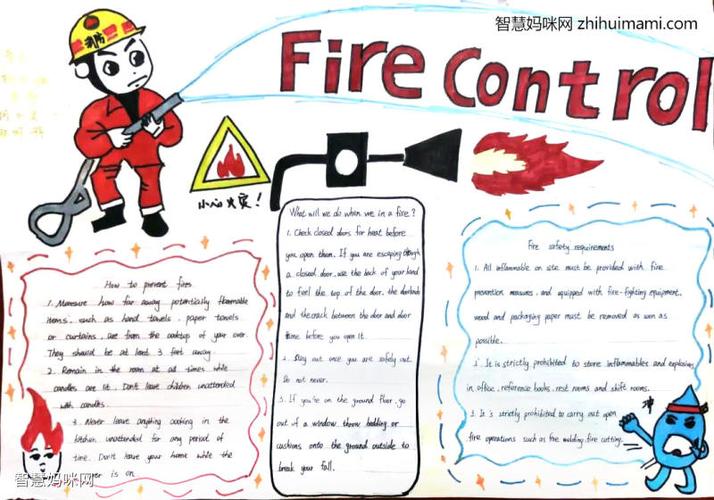 智慧妈咪网 zhihuimami.com
消防
Fire Control
小心火灾!
How to prevent fires
1. Measure how far away potentially flammable
items, such as hand towels, paper towels
or curtains, are from the cooktop of your over.
They should be at least 3 feet away.
2. Remain in the room at all times while
candles are lit. Don't leave children unattended
with candles.
3. Never leave anything cooking in the
kitchen unattended for any period of
time. Don't leave your home while the
is on.
What will we do when we in a fire?
1. Check closed doors for heat before
you open them. If you are escaping through
a closed door, use the back of your hand
to feel the top of the door, the doorknob
and the crack between the door and door
frame before you open it.
2. Stay out once you are safely out.
Do not never.
3. If you're on the ground floor, go
out of a window, throw bedding or
cushions onto the ground outside to
break your fall.
Fire safety requirements
1. All inflammable on site must be provided with fire
prevention measures, and equipped with fire-fighting equipment,
wood and packaging paper must be removed as well as
possible.
2. It is strictly prohibited to store inflammables and explosives
in office, reference books, rest rooms and shift rooms.
3. It's strictly prohibited to carry out open
fire operations such as fire welding, fire cutting.
智慧妈咪网